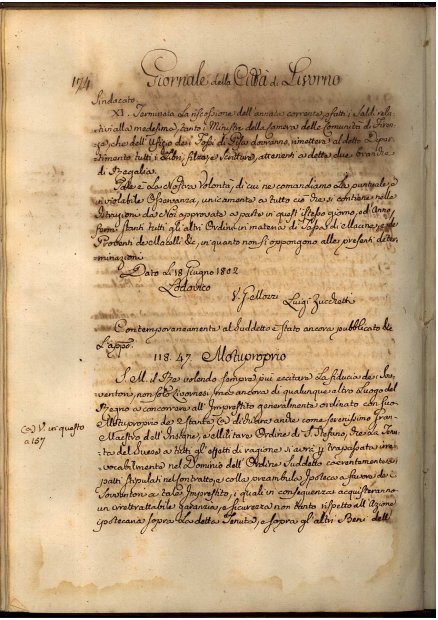 174 Giornale della Città di Livorno
Sindacato.
XI. Terminata la riscossione dell'annata corrente, e fatti i saldi rela-
tivi alla medesima, tanto i Ministri della Camera delle Comunità di Firen-
ze, che dell'Ufizio dei Fossi di Pisa dovranno rimettere al detto Dipar-
timento tutti i Libri, filze, e Scritture attenenti a detta due branche
di Regalia.
Tale è la Nostra Volontà, di cui ne comandiamo la puntuale, e
inviolabile Osservanza, unicamente a tutto ciò che si contiene nelle
Istruzioni da Noi approvate a parte in quest'istesso giorno, ed
stanti tutti gli altri Ordini in materia di Tassa di Macine, e de
Proventi de Macelli &c, in quanto non si oppongono alle presenti deter-
minazioni.
Dato li 18 Giugno 1802
Lodovico
V. Luigi Zucchetti
Contemporaneamente al suddetto è stato ancora pubblicato &c
L'appo:
118. 47. Motuproprio
S. M. il Re volendo sempre più eccitare la fiducia dei Sov-
ventori, non solo Livornesi, ma ancora di qualunque altro Luogo del
Regno a concorrere all'Imprestito generalmente ordinato con suo
Motuproprio de' 2 stante (a) come serenissimo Gran-
Maestro dell'Insigne, e militare Ordine di S. Stefano, che la Te-
nuta del a tutti gli effetti di ragione s'avrà p. trapassata irre-
vocabilmente nel Dominio dell'Ordine Suddetto coerentemente ai
patti stipulati nel contratto, e colla preambula Ipoteca a favore dei
Sovventori a tale Imprestito, i quali in conseguenza acquisteranno
un irretrattabile garanzia, e sicurezza non tanto rispetto all'Azione
ipotecaria sopra la detta Tenuta, e sopra gli altri Beni dell'
(a) V. in questo
a 157